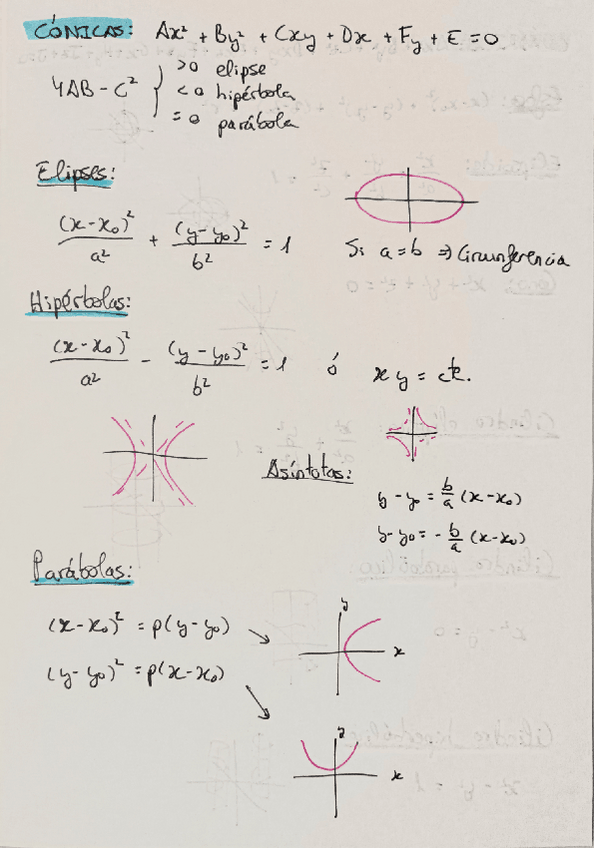 CÓNICAS: Ax² + By² + Cxy + Dx + Fy + E = 0
4AB - C² } >0 elipse
<0 hipérbola
=0 parábola
Elipses:
(x-x₀)²/a² + (y-y₀)²/b² = 1
Si a=b ⇒ Circunferencia
Hipérbolas:
(x-x₀)²/a² - (y-y₀)²/b² = 1 ó xy = cte.
Asíntotas:
y-y₀ = b/a (x-x₀)
y-y₀ = - b/a (x-x₀)
Parábolas:
(x-x₀)² = p(y-y₀)
(y-y₀)² = p(x-x₀)
y
x
x